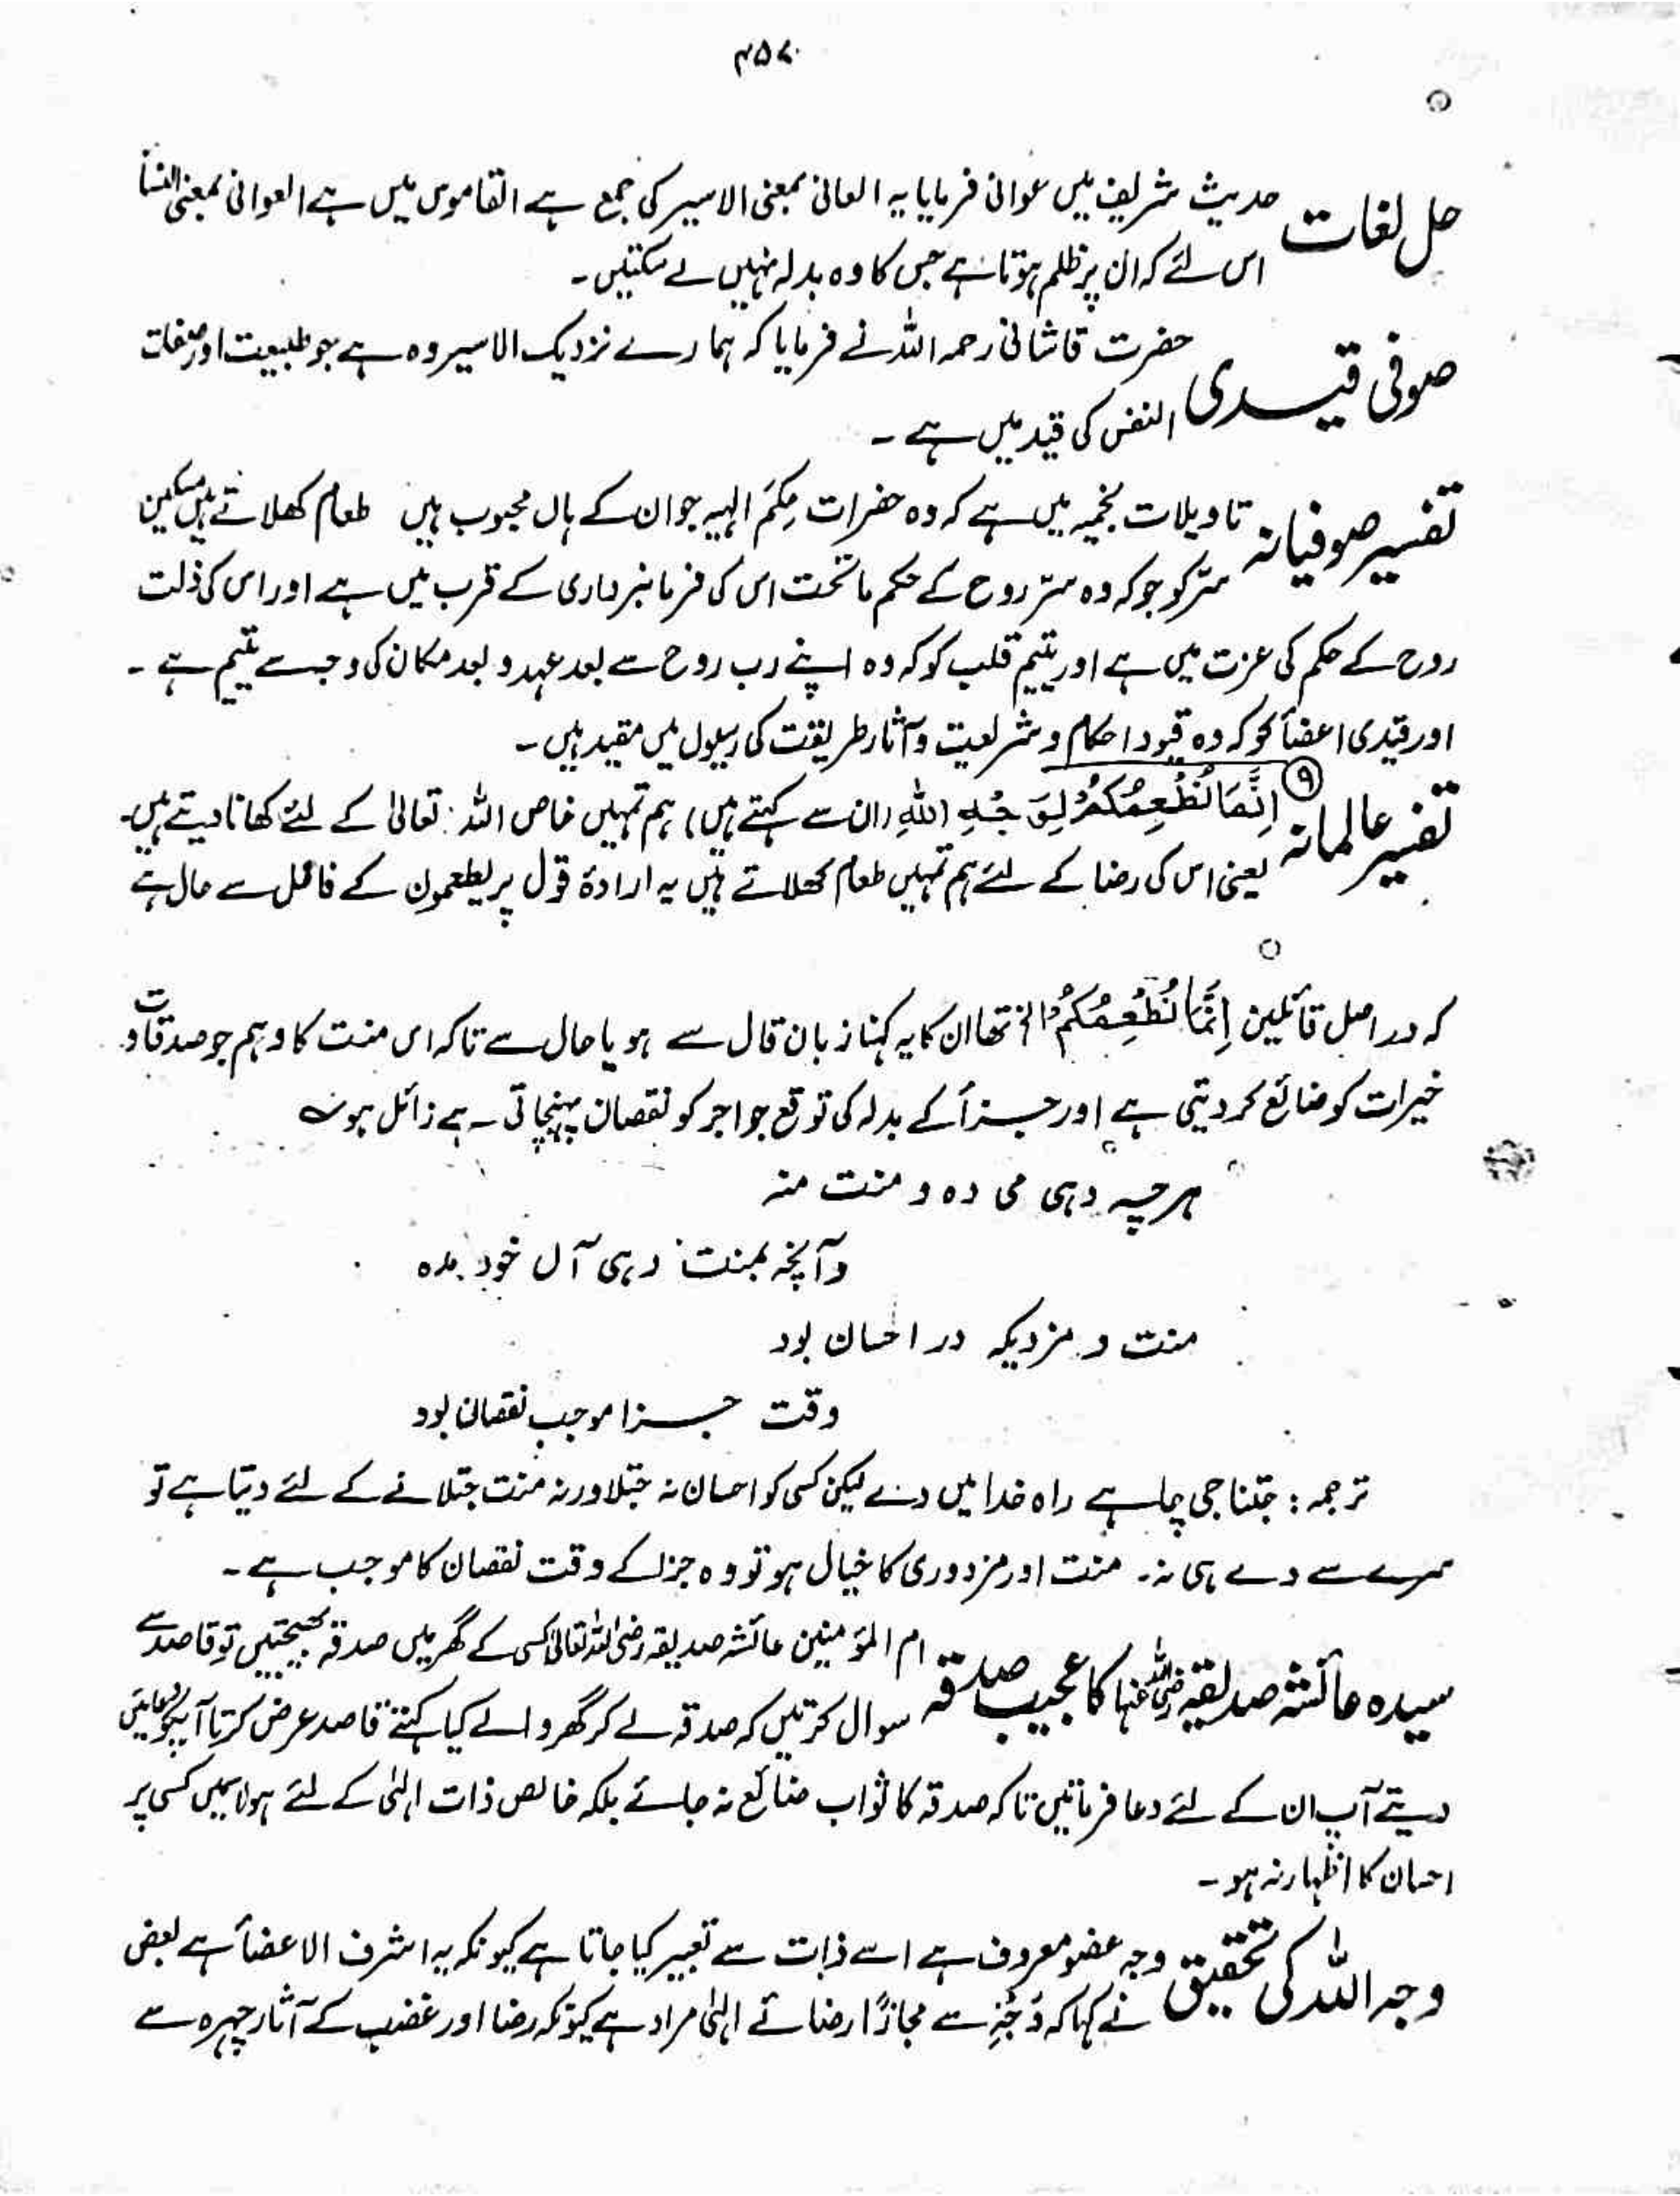 ۴۵۷
حل لغات حدیث شریف میں عوانی فرمایا یہ العانی بمعنی الاسیر کی جمع ہے القاموس میں ہے العوانی بمعنی النسأ
اس لئے کہ ان پر ظلم ہوتا ہے جس کا وہ بدلہ نہیں لے سکتیں۔
صوفی قیدی حضرت قاشانی رحمہ اللہ نے فرمایا کہ ہمارے نزدیک الاسیر وہ ہے جو طبیعت اور صفات
النفس کی قید میں ہے ۔
تفسیر صوفیانہ تاویلات نجمیہ میں ہے کہ وہ حضرات حِکَمِ الٰہیہ جو ان کے ہاں محبوب ہیں طعام کھلاتے ہیں مسکین
سّر کو جو کہ وہ سّر روح کے حکم ماتحت اس کی فرمانبرداری کے قرب میں ہے اور اس کی ذلت
روح کے حکم کی عزت میں ہے اور یتیم قلب کو کہ وہ اپنے رب روح سے بعد عہد و بعد مکان کی وجہ سے یتیم ہے ۔
اور قیدی اعضأ کو کہ وہ قیود احکام و شریعت و آثار طریقت کی رسیوں میں مقید ہیں ۔
تفسیر عالمانہ ۹ اِنَّمَا نُطْعِمُكُمْ لِوَجْهِ اللهِ (ان سے کہتے ہیں) ہم تمہیں خاص اللہ تعالیٰ کے لئے کھانا دیتے ہیں۔
یعنی اس کی رضا کے لئے ہم تمہیں طعام کھلاتے ہیں یہ ارادۃ قول پر یطعمون کے فاعل سے حال ہے
کہ دراصل قائلین اِنَّمَا نُطْعِمُكُمْ الخ تھا ان کا یہ کہنا زبان قال سے ہو یا حال سے تاکہ اس منت کا وہم جو صدقات و
خیرات کو ضائع کر دیتی ہے اور جزأ کے بدلہ کی توقع جو اجر کو نقصان پہنچاتی ۔ ہے زائل ہو
ہر چہ دہی می دہ و منت منہ
و آنچہ بمنت دہی آں خود مدہ
منت و مزدیکہ در احسان بود
وقت جزا موجب نقصان بود
ترجمہ : جتنا جی چاہے راہ خدا میں دے لیکن کسی کو احسان نہ جتلا ورنہ منت جتلانے کے لئے دیتا ہے تو
سرے سے دے ہی نہ۔ منت اور مزدوری کا خیال ہو تو وہ جزا کے وقت نقصان کا موجب ہے ۔
سیدہ عائشہ صدیقہ رضی اللہ عنہا کا عجیب صدقہ ام المؤمنین عائشہ صدیقہ رضی اللہ تعالیٰ کسی کے گھر میں صدقہ بھیجتیں تو قاصد سے
سوال کرتیں کہ صدقہ لے کر گھر والے کیا کہتے قاصد عرض کرتا آپکو دعائیں
دیتے آپ ان کے لئے دعا فرماتیں تاکہ صدقہ کا ثواب ضائع نہ جائے بلکہ خالص ذات الٰہی کے لئے ہو اسمیں کسی پر
احسان کا اظہار نہ ہو ۔
وجہ اللہ کی تحقیق وجہ عضو معروف ہے اسے ذات سے تعبیر کیا جاتا ہے کیونکہ یہ اشرف الاعضأ ہے بعض
نے کہا کہ وَجْہِ سے مجازًا رضائے الٰہی مراد ہے کیونکہ رضا اور غضب کے آثار چہرہ سے